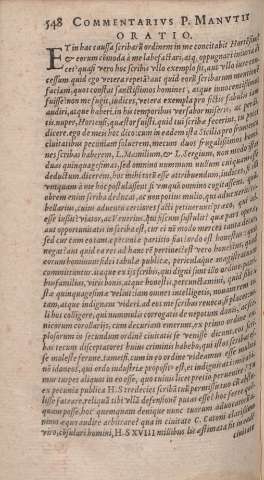 548 COMMENTARIVS P. MANVTII
ORATIO.
ET in hac caussa scribarū ordinem in me concitabit Hortēsius,
& eorum cōmoda à me labefactari, atq; oppugnari iura di
cet: quasi vero hoc scribis vllo exemplo sit, aut vllo iure con-
cessum
faciam, quos constat sanctissimos homines, atque innocentissimos
fuisse? non me fugit, iudices, vetera exempla pro fictis fabulis iam
audiri, atque haberi. in his temporibus versabor miseris, ac perdi
tis nuper, Hortensi, quæstor fuisti. quid tui scribæ fecerint, tu potes
dicere. ego de meis hoc dico: cum in eadem ista Sicilia pro frumento
ciuitatibus pecuniam soluerem, mecum duos frugalissimos homi-
nes scribas haberem, L. Mamilium, & L. Sergium, non modo istas
duas quinquagesimas, sed omnino nummum nullum cuiquam esse
deductum. dicerem, hoc mihi totum esse attribuendum, iudices, si
vnquam à me hoc postulassent si vnquam omnino cogitassent. quid
abrem enim scriba deducat, ac non potius mulio, qui aduexerit? ta
bellarius, cuius aduentu certiores facti petiuerunt? præco, qui adire
esse iussit? viator, aut Venerius, qui fiscum sustulit? quæ pars operæ,
aut opportunitatis in scriba est, cur ei nō modo merces tanta detur,
sed cur cum eo tantæ pecuniæ partitio fiat? ordo est honestus: quis
negat? aut quid ea res ad hanc rē pertinet? est vero honestus, quod
eorum hominum fidei tabulæ publicæ, periculaque magistratuum
committuntur. itaque ex ijs scribis, qui digni sunt illo ordine, patri
busfamilias, viris bonis, atque honestis, percunctamini, quid sibi
istæ quinquagesimæ velint: iam omnes intelligetis, nouam rem to-
tam, atque indignam videri. ad eos me scribas reuoca, si placet: no
li hos colligere, qui nummulis corrogatis de nepotum donis, ac sce
nicorum corollarijs, cum decuriam emerunt, ex primo ordine ex-
plosorum in secundum ordinē ciuitatis se venisse dicunt. eos scri-
bas tecum disceptatores huius criminis habebo, qui istos scribas es
se moleste ferunt. tametsi, cum in eo ordine videamus esse multos
nō idoneos, qui ordo industriæ propositus est, et dignitati: mirabi
mur turpes aliquos in eo esse, quo cuiuis licet pretio peruenire? Tu
ex pecunia publica H S tredecies scribā tuū permissu tuo cū abstu-
lisse fateare, reliquā tibi vllā defensionē putas esse? hoc
quam posse, hoc quemquam denique nunc tuorum aduocatorum
animo æquo audire arbitrare? qua in ciuitate C. Catoni clarissimo
viro, cōsulari homini, H S XVIII millibus lis æstimata sit, in eadē
ciuitate